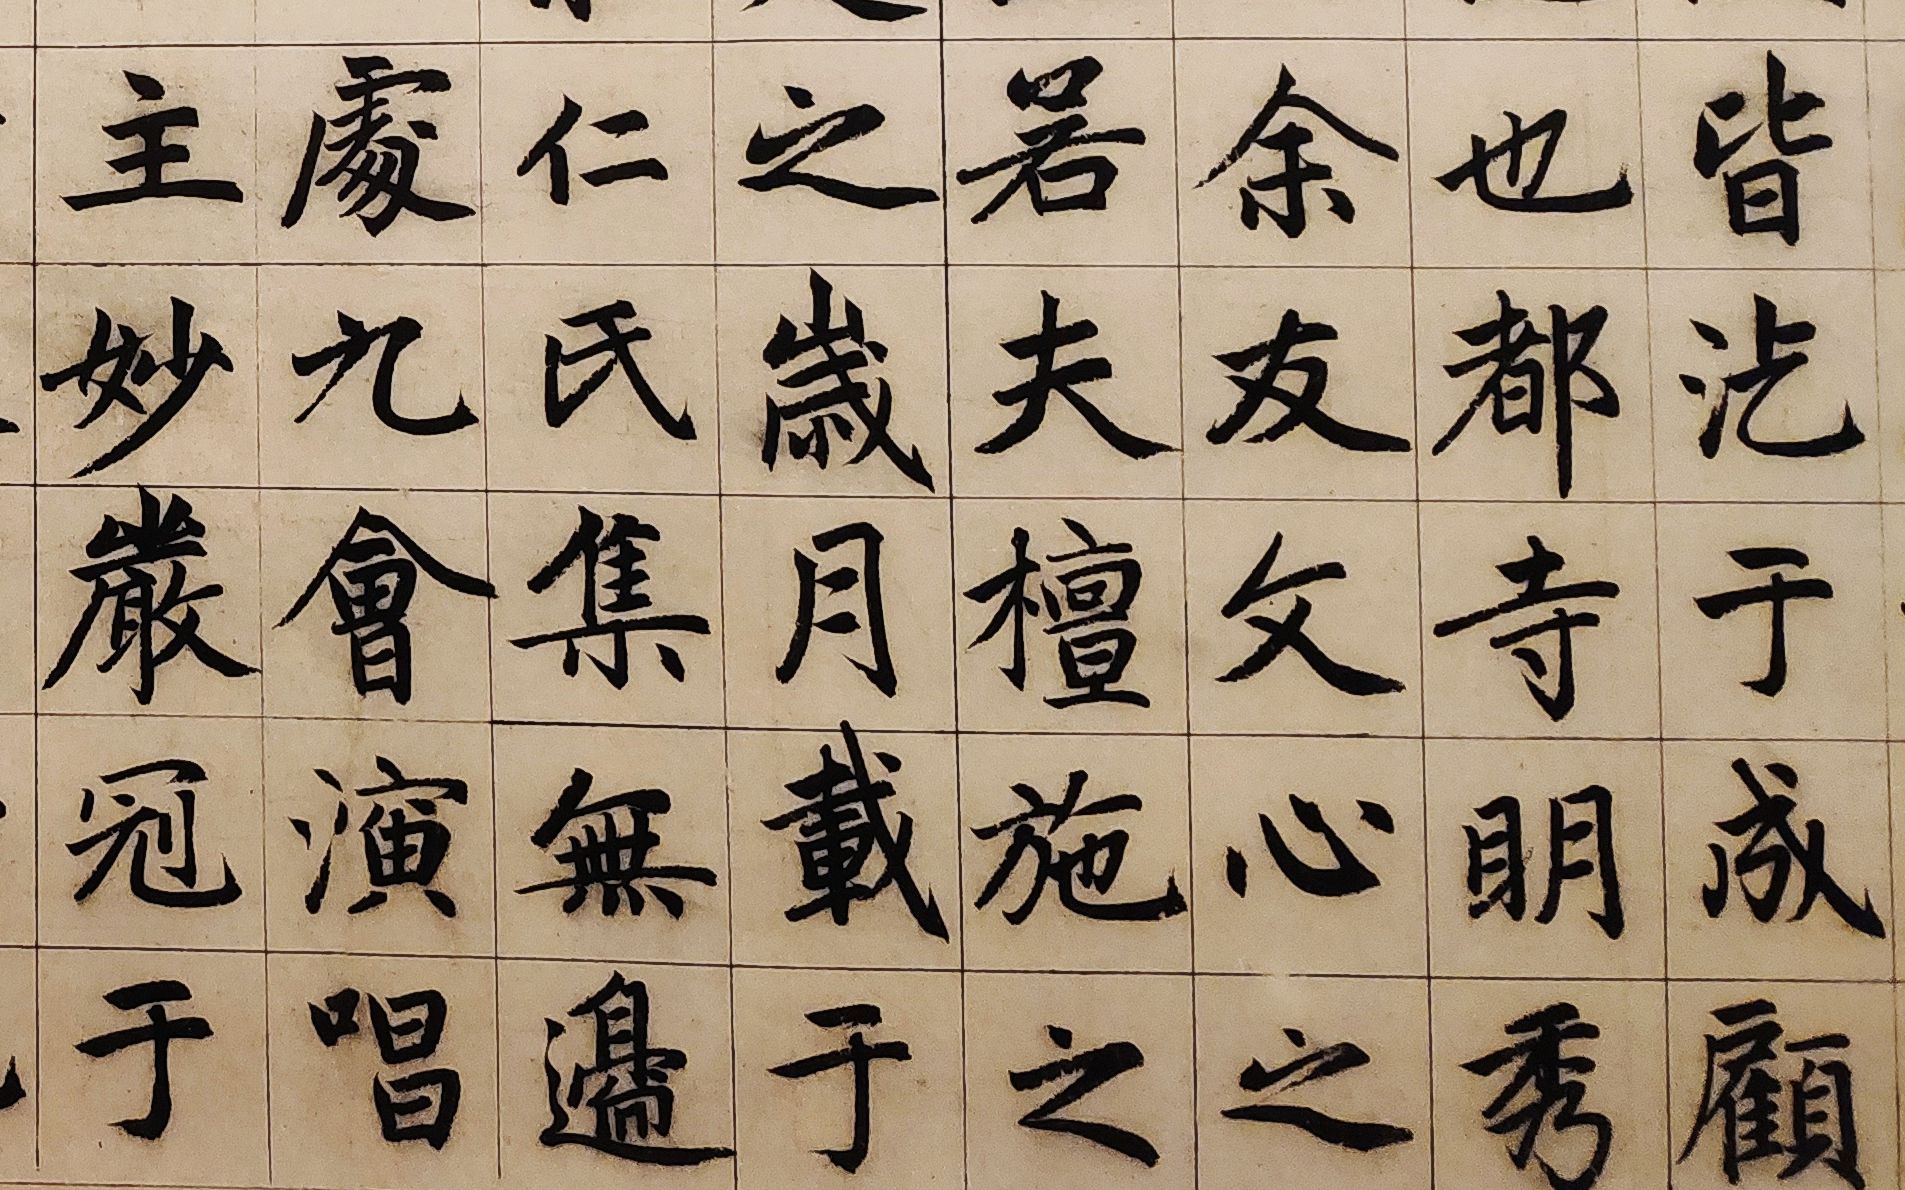 皆汔于成顧
也都寺明秀
余友文心之
若夫檀施之
之歲月載于
仁氏集無邊
處九會演唱
主妙嚴冠于